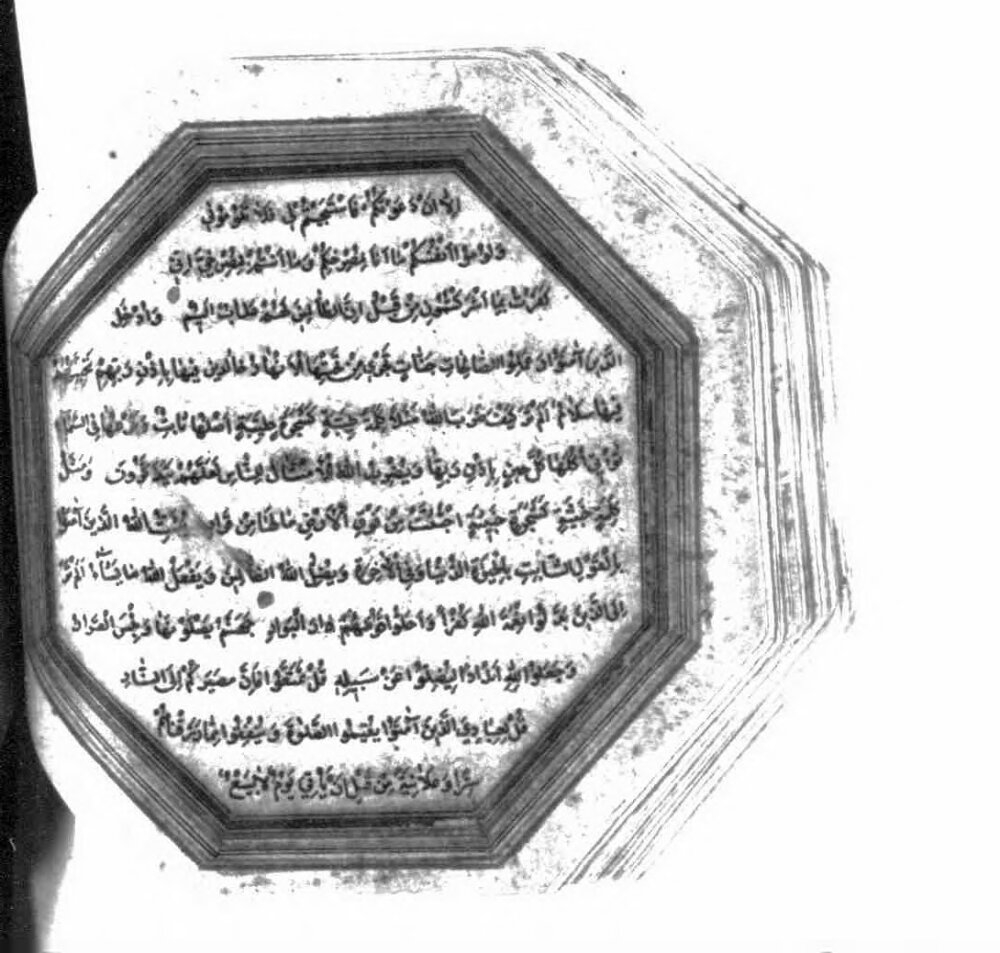 الا ان دعوتكم فاستجبتم لي فلا تلوموني
ولوموا انفسكم ما انا بمصرخكم وما انتم بمصرخي اني
كفرت بما اشركتمون من قبل ان الظالمين لهم عذاب اليم وادخل
الذين آمنوا وعملوا الصالحات جنات تجري من تحتها الانهار خالدين فيها باذن ربهم تحيتهم
فيها سلام الم تر كيف ضرب الله مثلا كلمة طيبة كشجرة طيبة اصلها ثابت وفرعها في السماء
تؤتي اكلها كل حين باذن ربها ويضرب الله الامثال للناس لعلهم يتذكرون ومثل
كلمة خبيثة كشجرة خبيثة اجتثت من فوق الارض ما لها من قرار يثبت الله الذين آمنوا
بالقول الثابت بالحيوة الدنيا وفي الآخرة ويضل الله الظالمين ويفعل الله ما يشاء الم تر
الى الذين بدلوا نعمة الله كفرا واحلوا قومهم دار البوار جهنم يصلونها وبئس القرار
وجعلوا لله اندادا ليضلوا عن سبيله قل تمتعوا فان مصيركم الى النار
قل لعبادي الذين آمنوا يقيموا الصلوة وينفقوا مما رزقناهم
سرا وعلانية من قبل ان يأتي يوم لا بيع